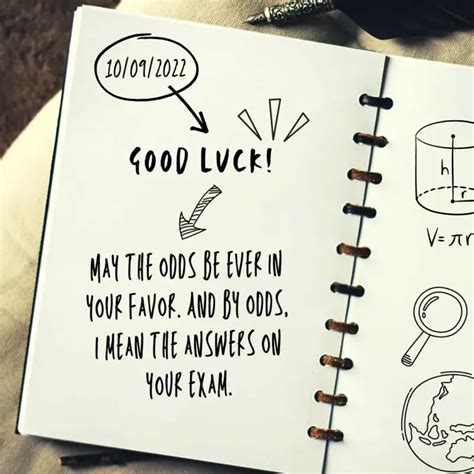 10/09/2022
GOOD LUCK!
MAY THE ODDS BE EVER IN
YOUR FAVOR. AND BY ODDS,
I MEAN THE ANSWERS ON
YOUR EXAM.
h
r
V=πr